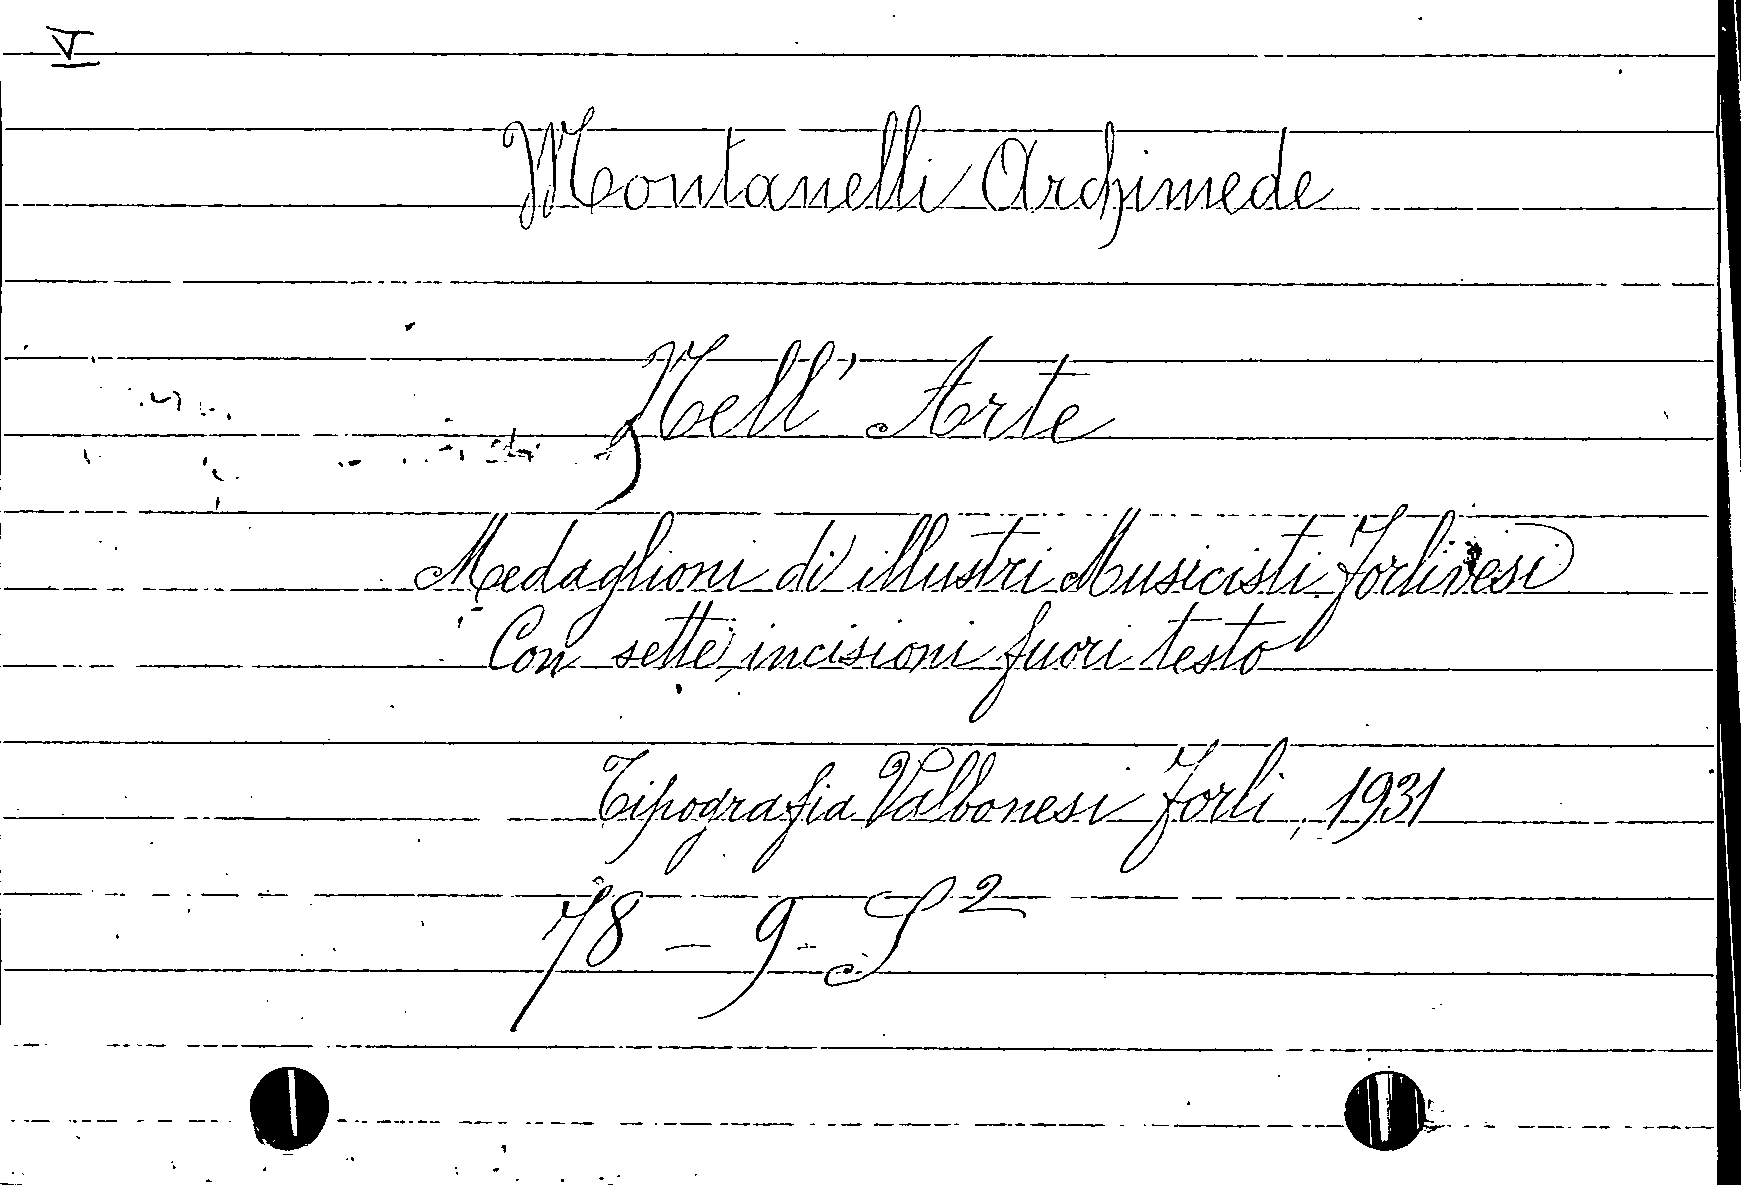 V
Montanelli Archimede
Nell' Arte
Medaglioni di illustri Musicisti Forlivesi
Con sette incisioni fuori testo
Tipografia Valbonesi Forlì, 1931
78 - 9 - S²